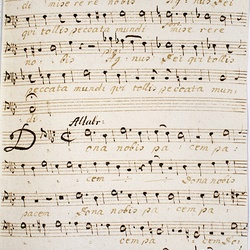 di mise rere nobis Agnus Dei qui
qui tollis peccata mundi mise rere
no bis Ag nus Dei qui tollis
peccata mundi qui tollis peccata mun
di:
Allabr:
Dona nobis pa cem pa:
cem Dona nobis
pacem Dona nobis pa cem
pa cem Do: